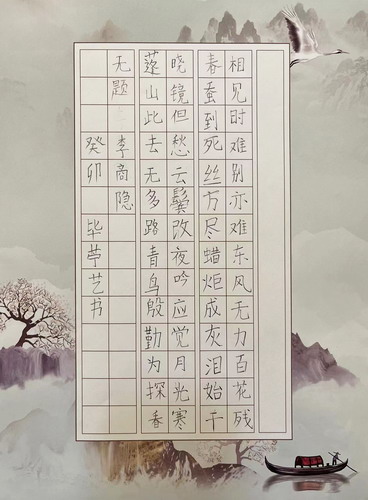 相见时难别亦难东风无力百花残
春蚕到死丝方尽蜡炬成灰泪始干
晓镜但愁云鬓改夜吟应觉月光寒
蓬山此去无多路青鸟殷勤为探看
无题 李商隐
癸卯 毕艺书